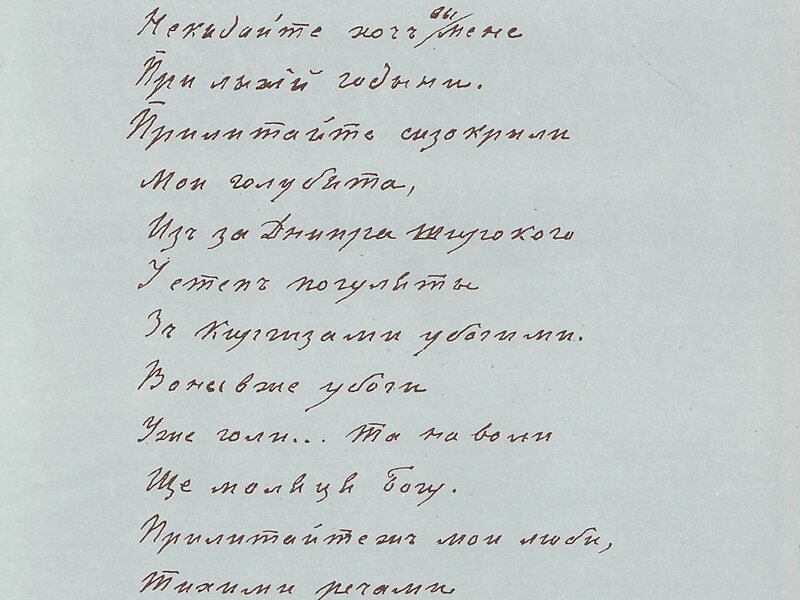 Некидайте хочъ вы мене
При лыхій годыни.
Прилитайте сизокрили
Мои голубята,
Изъ за Днипра широкого
У степъ погуляты
Зъ Киргизами убогими.
Воны вже убоги
Уже голи... та на воли
Ще моляця Богу.
Прилитайтежъ мои люби,
Тихими речами